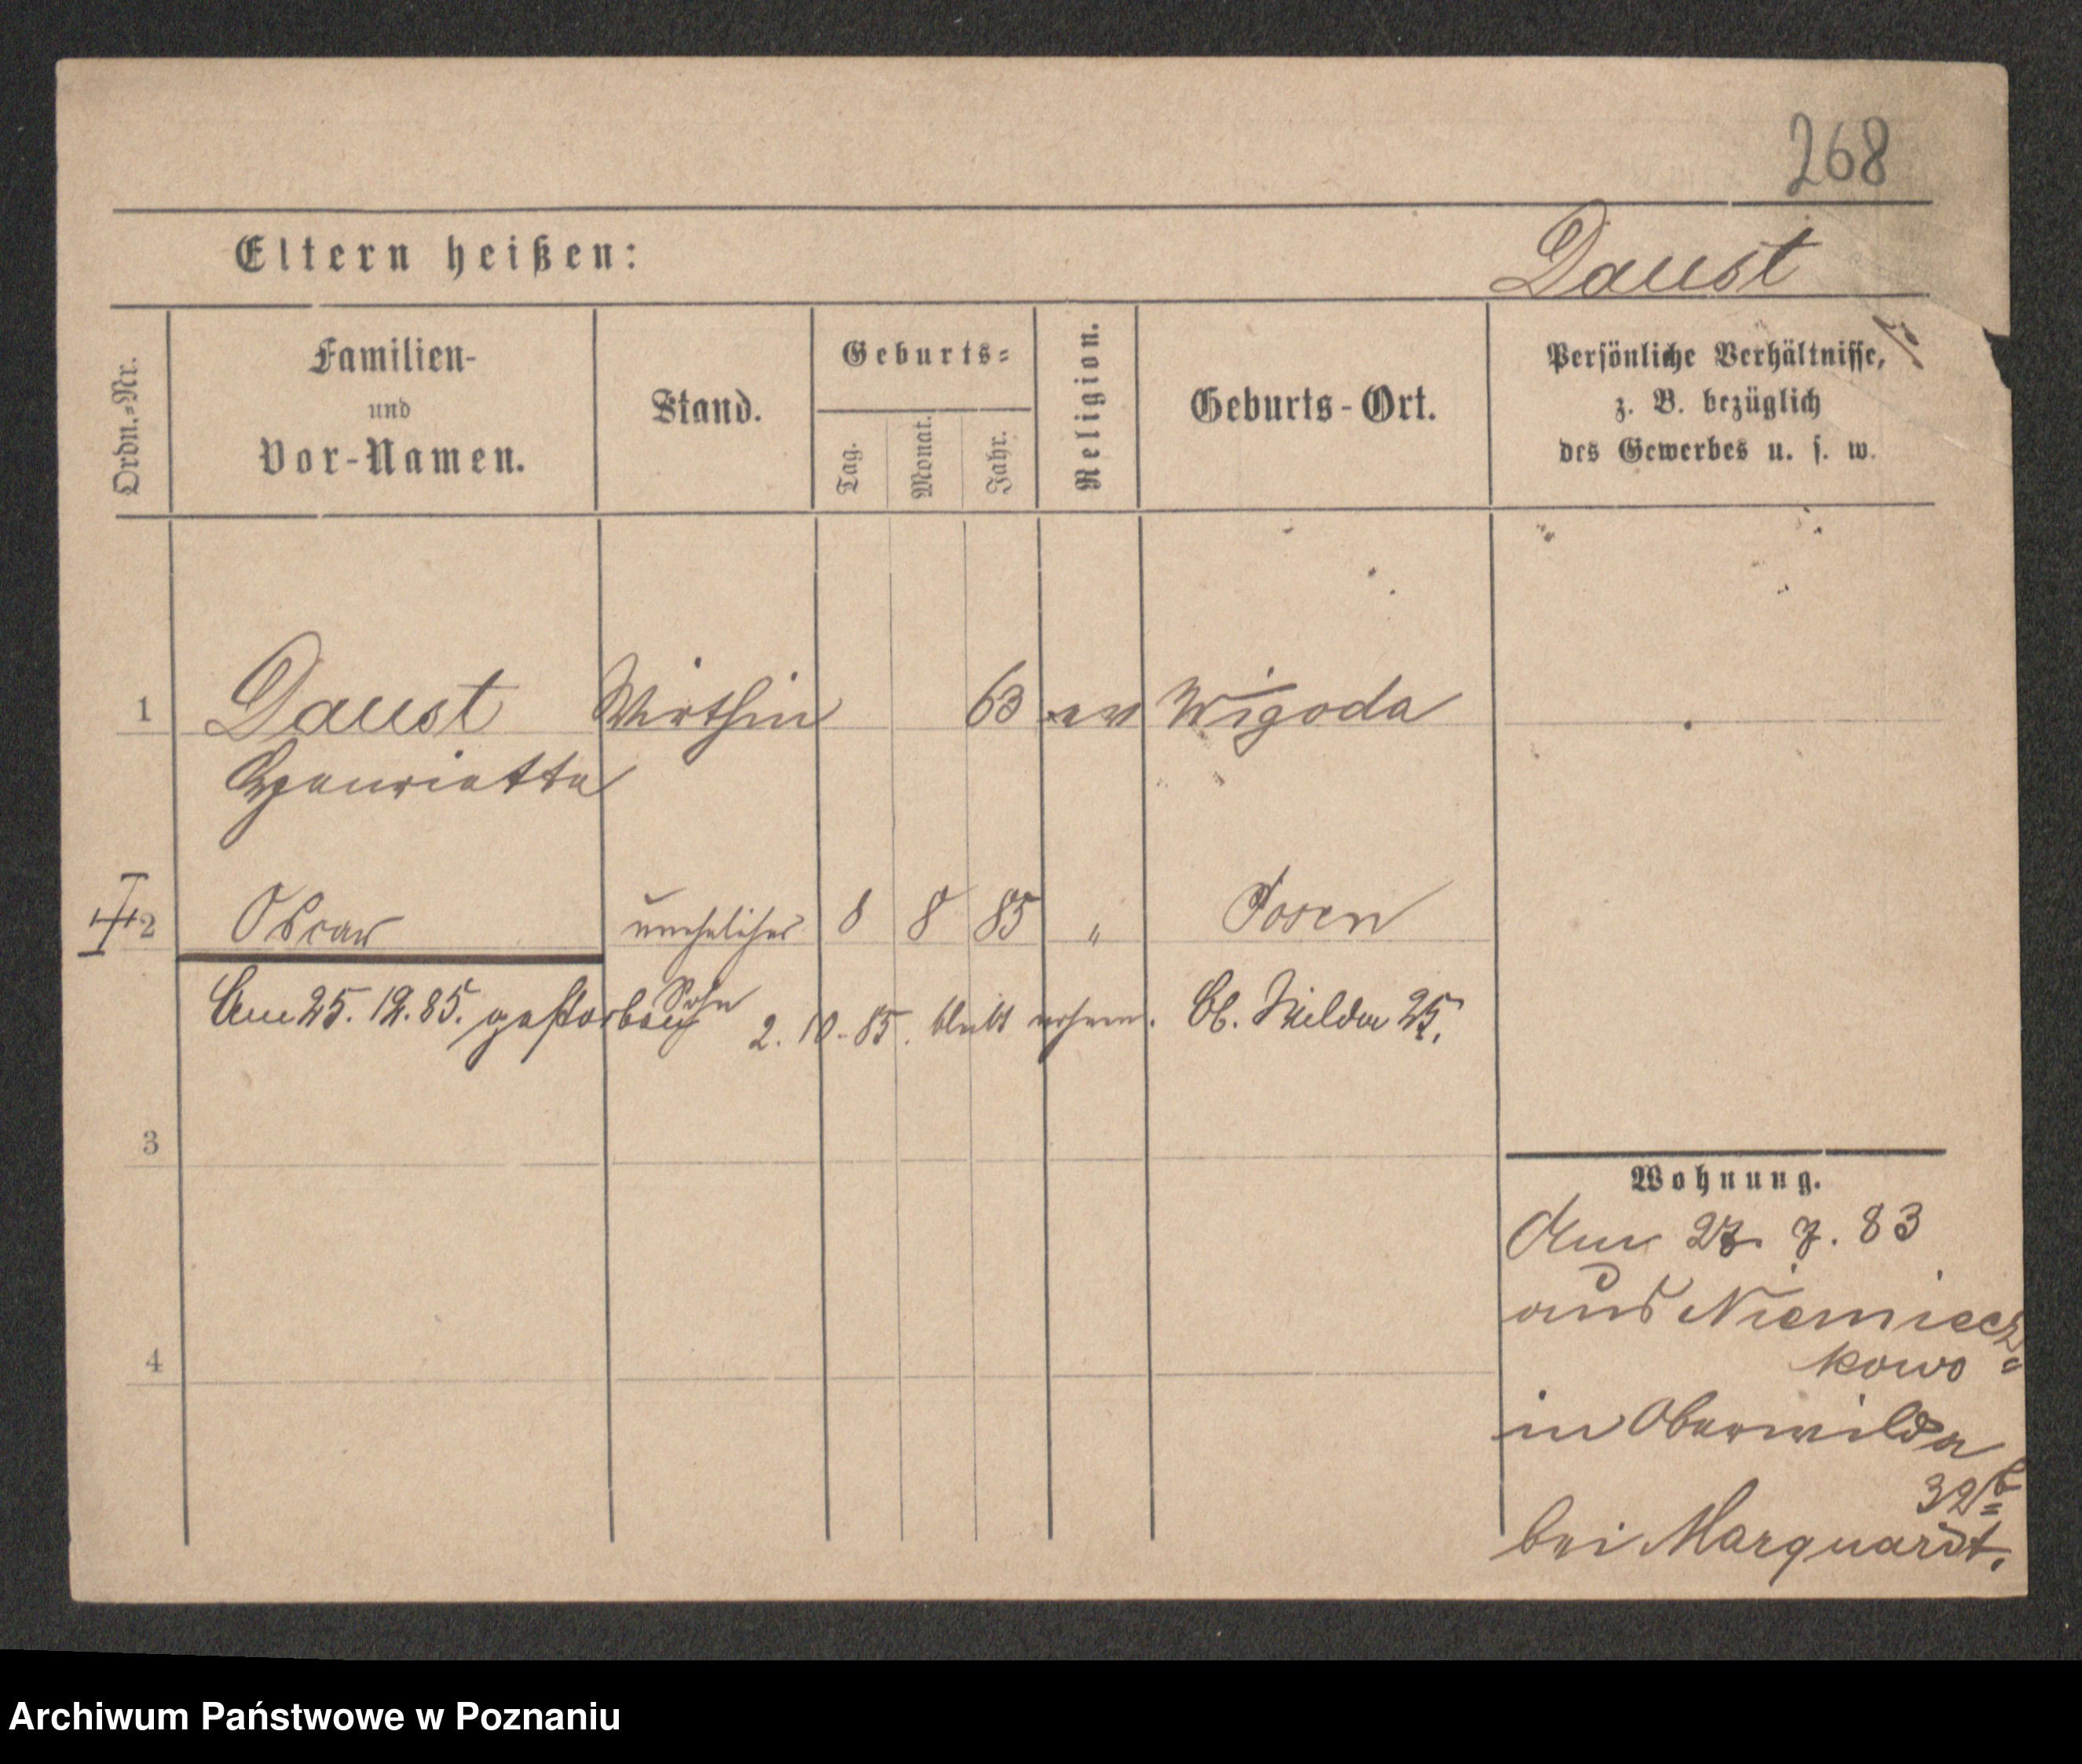 268
Eltern heißen: Daust
Ordn.-Nr.
Familien-
und
Vor-Namen.
Stand.
Geburts-
Tag. Monat. Jahr.
Religion.
Geburts-Ort.
Persönliche Verhältnisse,
z. B. bezüglich
des Gewerbes u. s. w.
1 Daust Wirthin 63 ev Wigoda
Henriette
2 Oscar unehelicher 8 8 85 " Posen
Sohn
Am 25. 12. 85. gestorben
2. 10. 85. bleibt Ob. Wilda 25.
3
4
Wohnung.
Am 27. 7. 83
aus Niemiecz-
kowo
in Oberwilda
32
bei Marquardt.
Archiwum Państwowe w Poznaniu